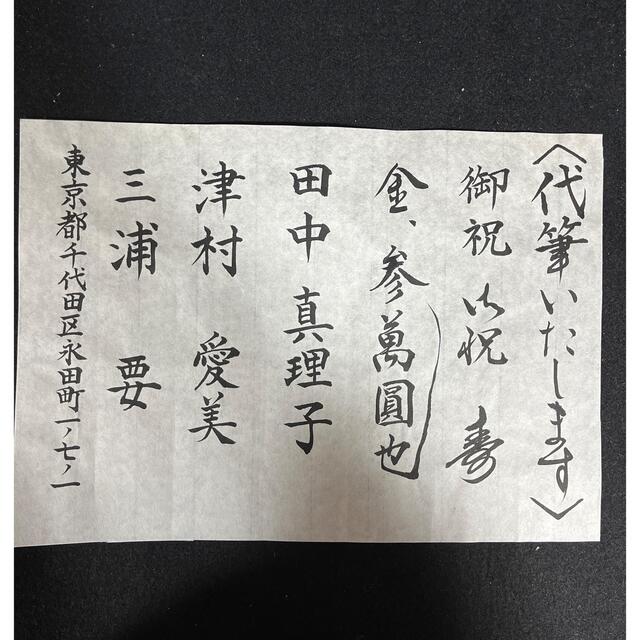 〈代筆いたします〉
御祝 御祝 寿
金、参萬圓也
田中 真理子
津村 愛美
三浦 要
東京都千代田区永田町一ノ七ノ一